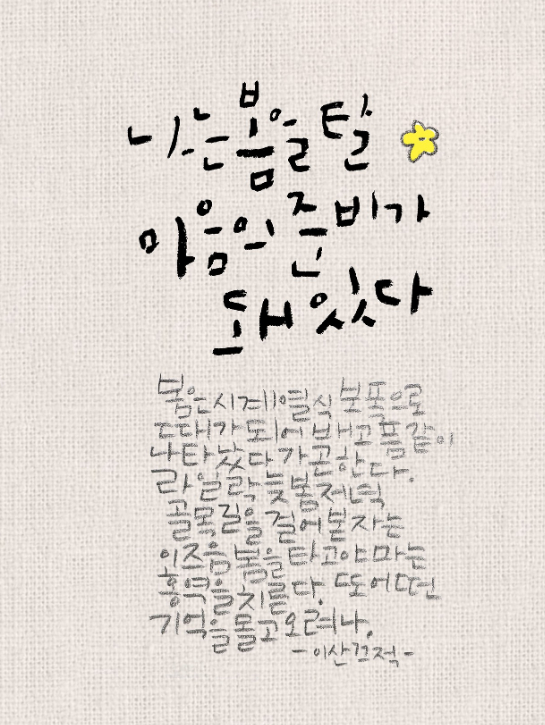 나는 봄을 탈
마음의 준비가
돼 있다
봄은 시계 열식 보폭으로
도대가 되어 배고픔같이
나타났다가곤 한다.
라일락 늦봄 저녁
골목길을 걸어본 자는
이즈음 봄을 타고야 마는
홍역을 치른다. 또 어떤
기억을 몰고 오려나.
-이산끄적-